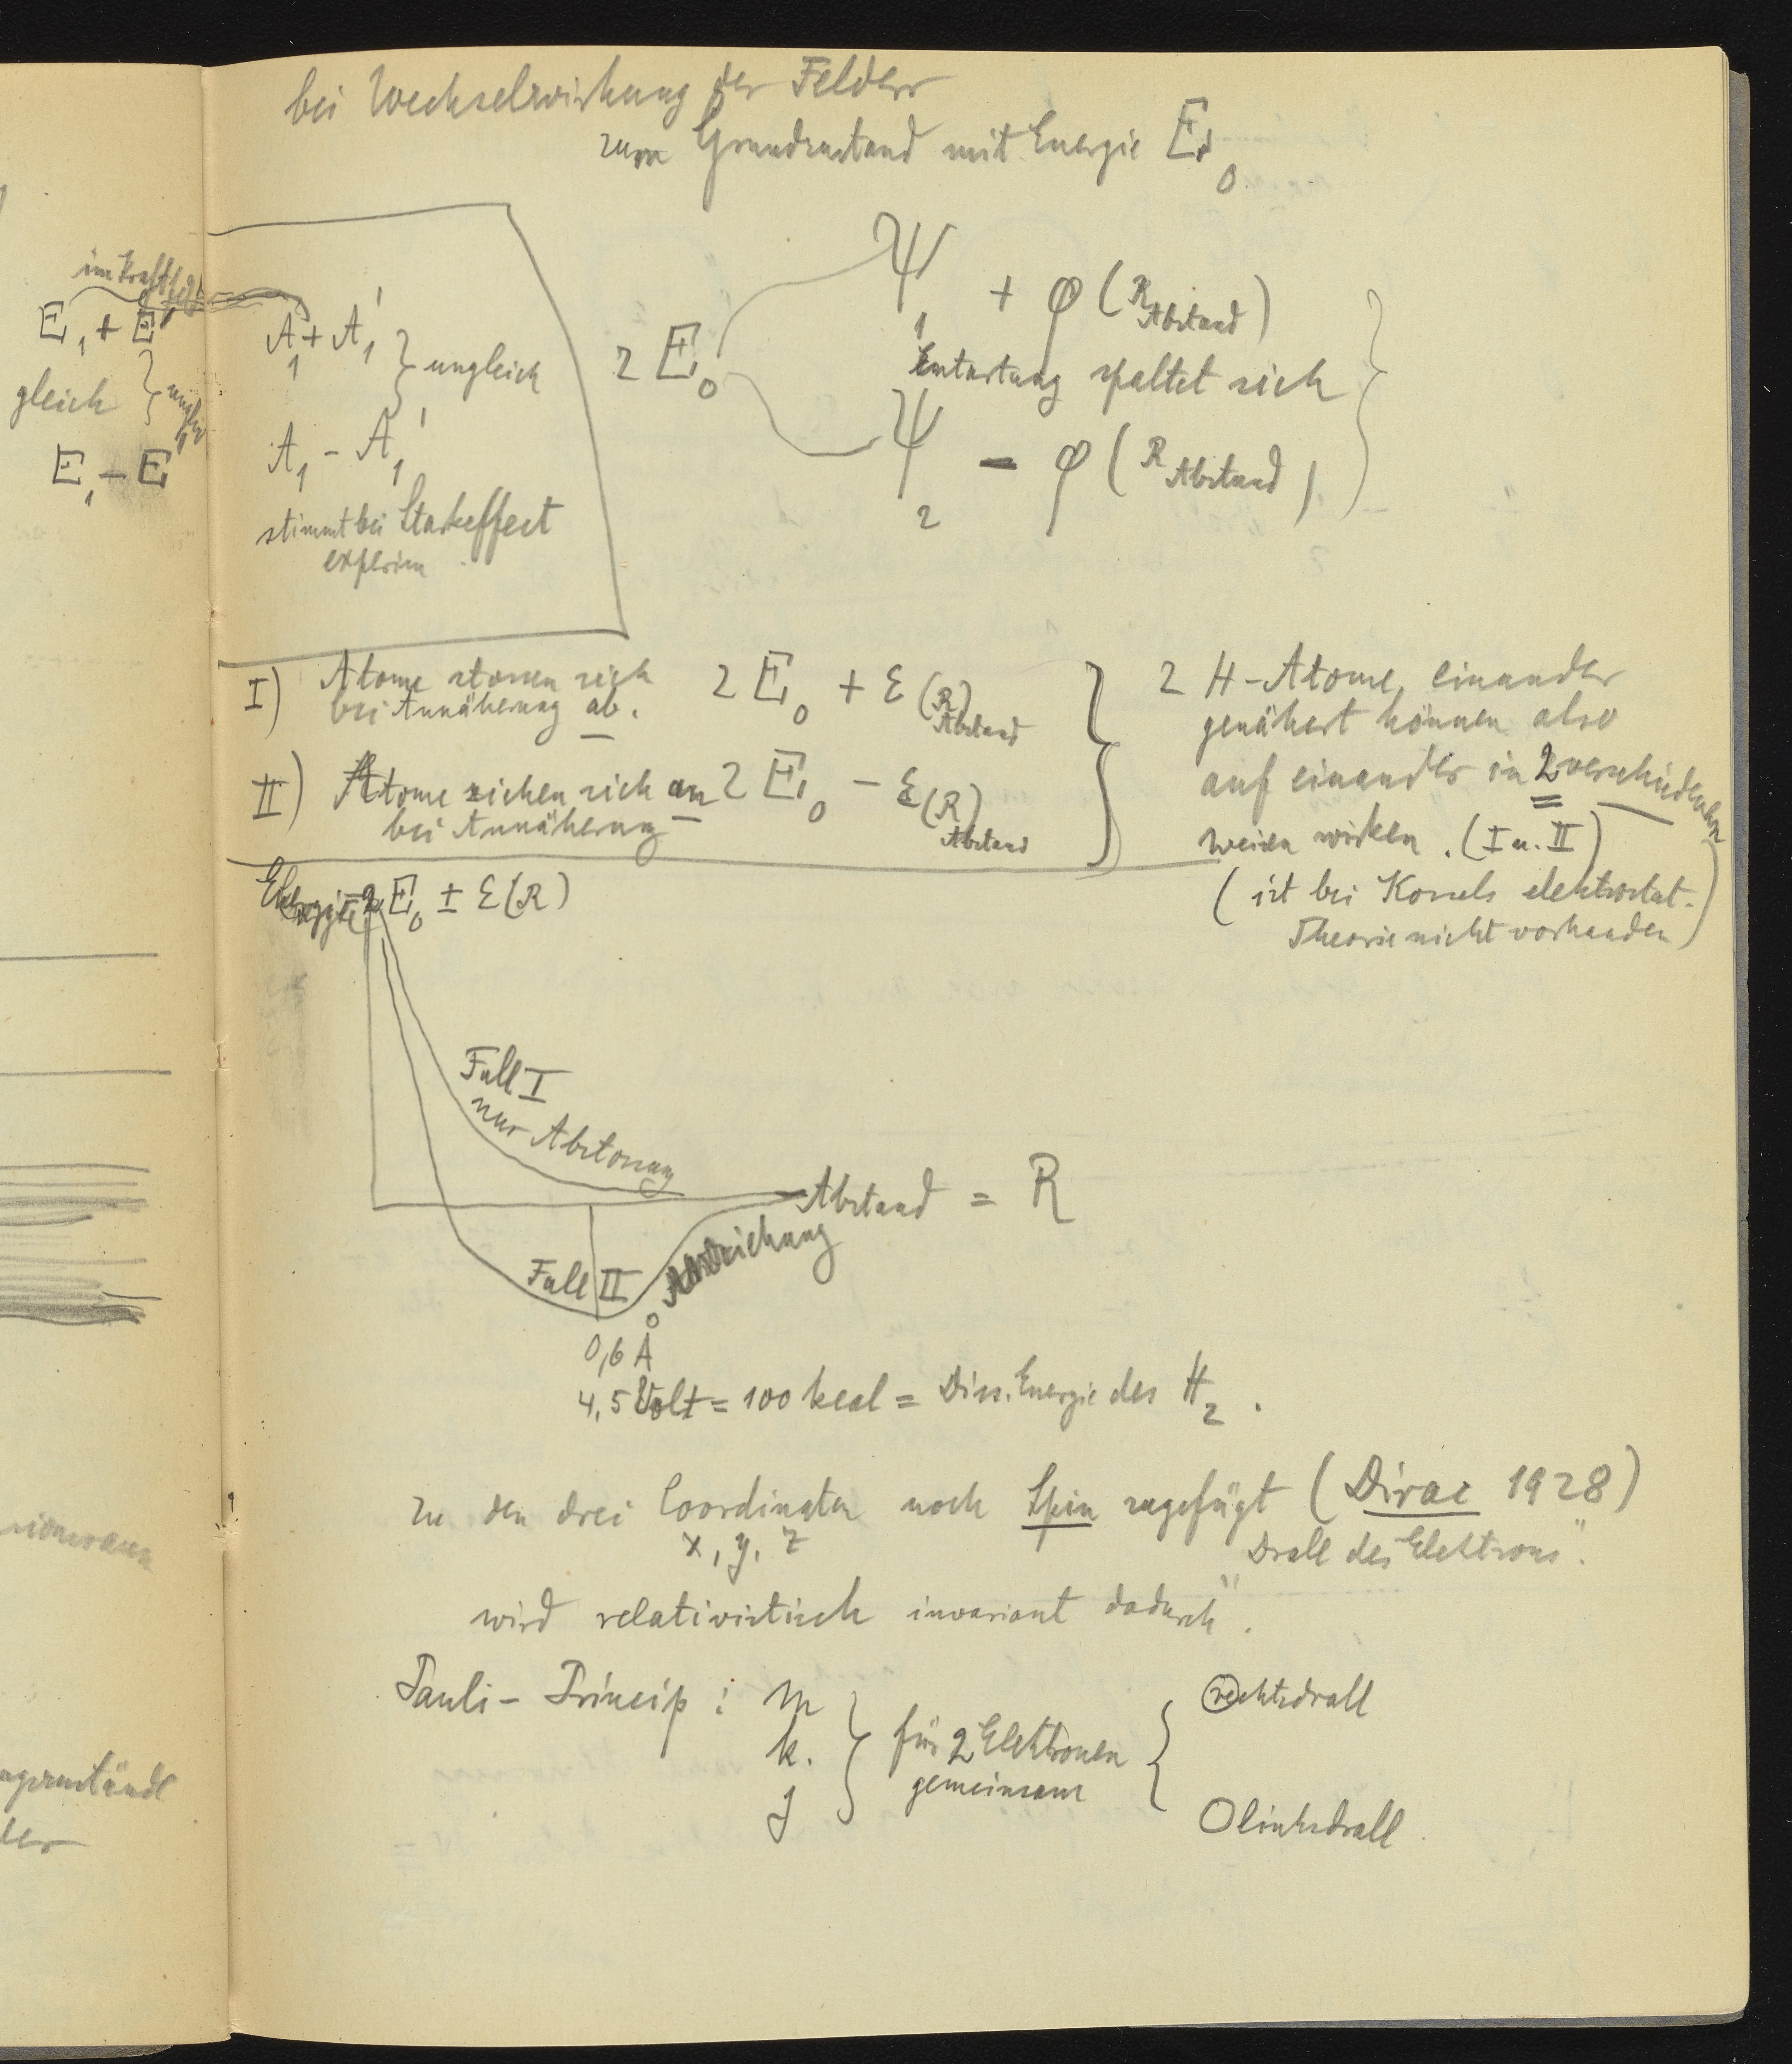 bei Wechselwirkung der Felder
zum Grundzustand mit Energie E₀
im Kraftfeld
E₁ + E'
gleich
E₁ - E'
A₁ + A₁'
} ungleich
A₁ - A₁'
stimmt bei Starkeffect
experim.
2 E₀
Ψ₁ + φ (R Abstand)
Entartung spaltet sich
Ψ₂ - φ (R Abstand)
I) Atome stossen sich
bei Annäherung ab.
2 E₀ + ε (R) Abstand
II) Atome ziehen sich an
bei Annäherung
2 E₀ - ε (R) Abstand
2 H-Atome, einander
genähert können also
auf einander in 2 verschiedenen
Weisen wirken. (I u. II)
(ist bei Kossels elektrostat.
Theorie nicht vorhanden)
Energie 2 E₀ ± ε (R)
Fall I
nur Abstossung
Abstand = R
Fall II
Anziehung
0,6 Å
4,5 Volt = 100 kcal = Diss. Energie des H₂.
Zu den drei Coordinaten noch Spin zugefügt (Dirac 1928)
x, y, z
"Drall des Elektrons".
wird relativistisch invariant dadurch".
Pauli-Princip: m
k.
j
} für 2 Elektronen
gemeinsam {
rechtsdrall
linksdrall